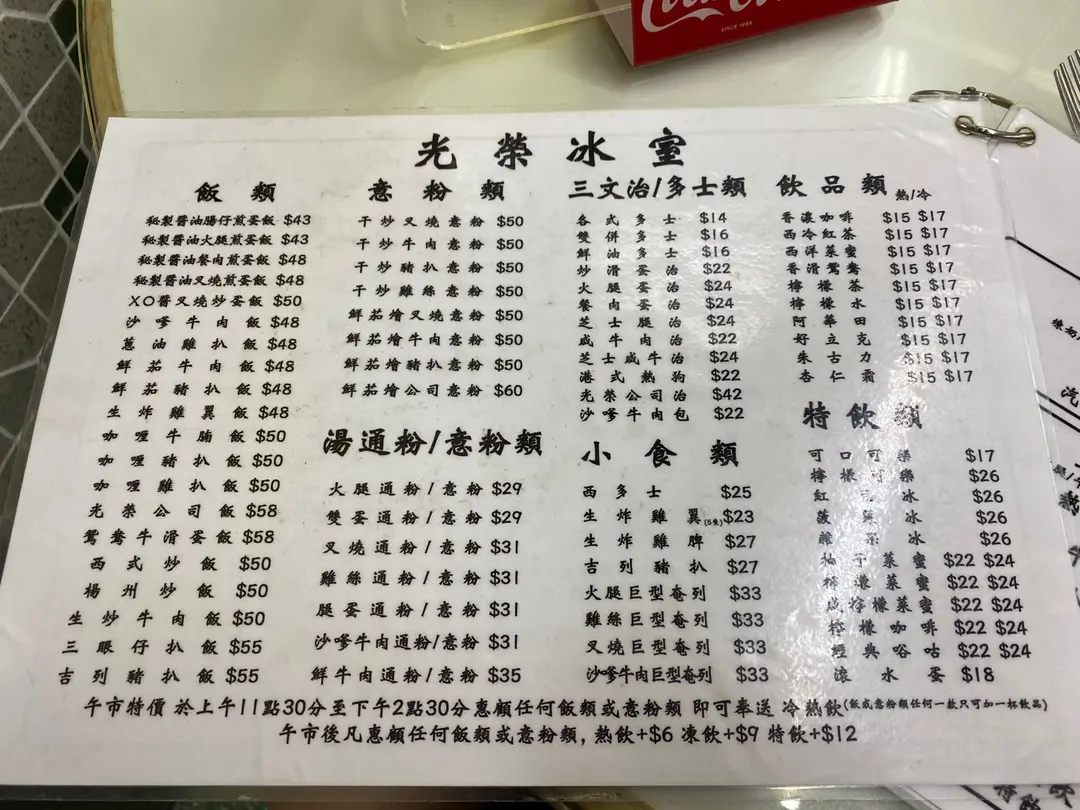 光榮冰室
飯類
秘製醬油腸仔煎蛋飯 $43
秘製醬油火腿煎蛋飯 $43
秘製醬油餐肉煎蛋飯 $48
秘製醬油叉燒煎蛋飯 $48
XO醬叉燒炒蛋飯 $50
沙嗲牛肉飯 $48
蔥油雞扒飯 $48
鮮茄牛肉飯 $48
鮮茄豬扒飯 $48
生炸雞翼飯 $48
咖喱牛腩飯 $50
咖喱豬扒飯 $50
咖喱雞扒飯 $50
光榮公司飯 $58
鴛鴦牛滑蛋飯 $58
西式炒飯 $50
楊州炒飯 $50
生炒牛肉飯 $50
三眼仔扒飯 $55
吉列豬扒飯 $55
意粉類
干炒叉燒意粉 $50
干炒牛肉意粉 $50
干炒豬扒意粉 $50
干炒雞絲意粉 $50
鮮茄燴叉燒意粉 $50
鮮茄燴牛肉意粉 $50
鮮茄燴豬扒意粉 $50
鮮茄燴公司意粉 $60
湯通粉/意粉類
火腿通粉/意粉 $29
雙蛋通粉/意粉 $29
叉燒通粉/意粉 $31
雞絲通粉/意粉 $31
腿蛋通粉/意粉 $31
沙嗲牛肉通粉/意粉 $31
鮮牛肉通粉/意粉 $35
三文治/多士類
各式多士 $14
雙併多士 $16
鮮油多士 $16
炒滑蛋治 $22
火腿蛋治 $24
餐肉蛋治 $24
芝士腿治 $24
咸牛肉治 $22
芝士咸牛治 $24
港式熱狗 $22
光榮公司治 $42
沙嗲牛肉包 $22
小食類
西多士 $25
生炸雞翼(5隻) $23
生炸雞脾 $27
吉列豬扒 $27
火腿巨型奄列 $33
雞絲巨型奄列 $33
叉燒巨型奄列 $33
沙嗲牛肉巨型奄列 $33
飲品類 熱/冷
香濃咖啡 $15 $17
西冷紅茶 $15 $17
西洋菜蜜 $15 $17
香滑鴛鴦 $15 $17
檸檬茶 $15 $17
檸檬水 $15 $17
阿華田 $15 $17
好立克 $15 $17
朱古力 $15 $17
杏仁霜 $15 $17
特飲類
可口可樂 $17
檸檬可樂 $26
紅豆冰 $26
菠蘿冰 $26
雜果冰 $26
柚子菜蜜 $22 $24
檸檬菜蜜 $22 $24
咸檸檬菜蜜 $22 $24
檸檬咖啡 $22 $24
經典唂咕 $22 $24
滾水蛋 $18
午市特價 於上午11點30分至下午2點30分惠顧任何飯類或意粉類 即可奉送 冷熱飲(飯或意粉類任何一款只可加一杯飲品)
午市後凡惠顧任何飯類或意粉類, 熱飲+$6 凍飲+$9 特飲+$12